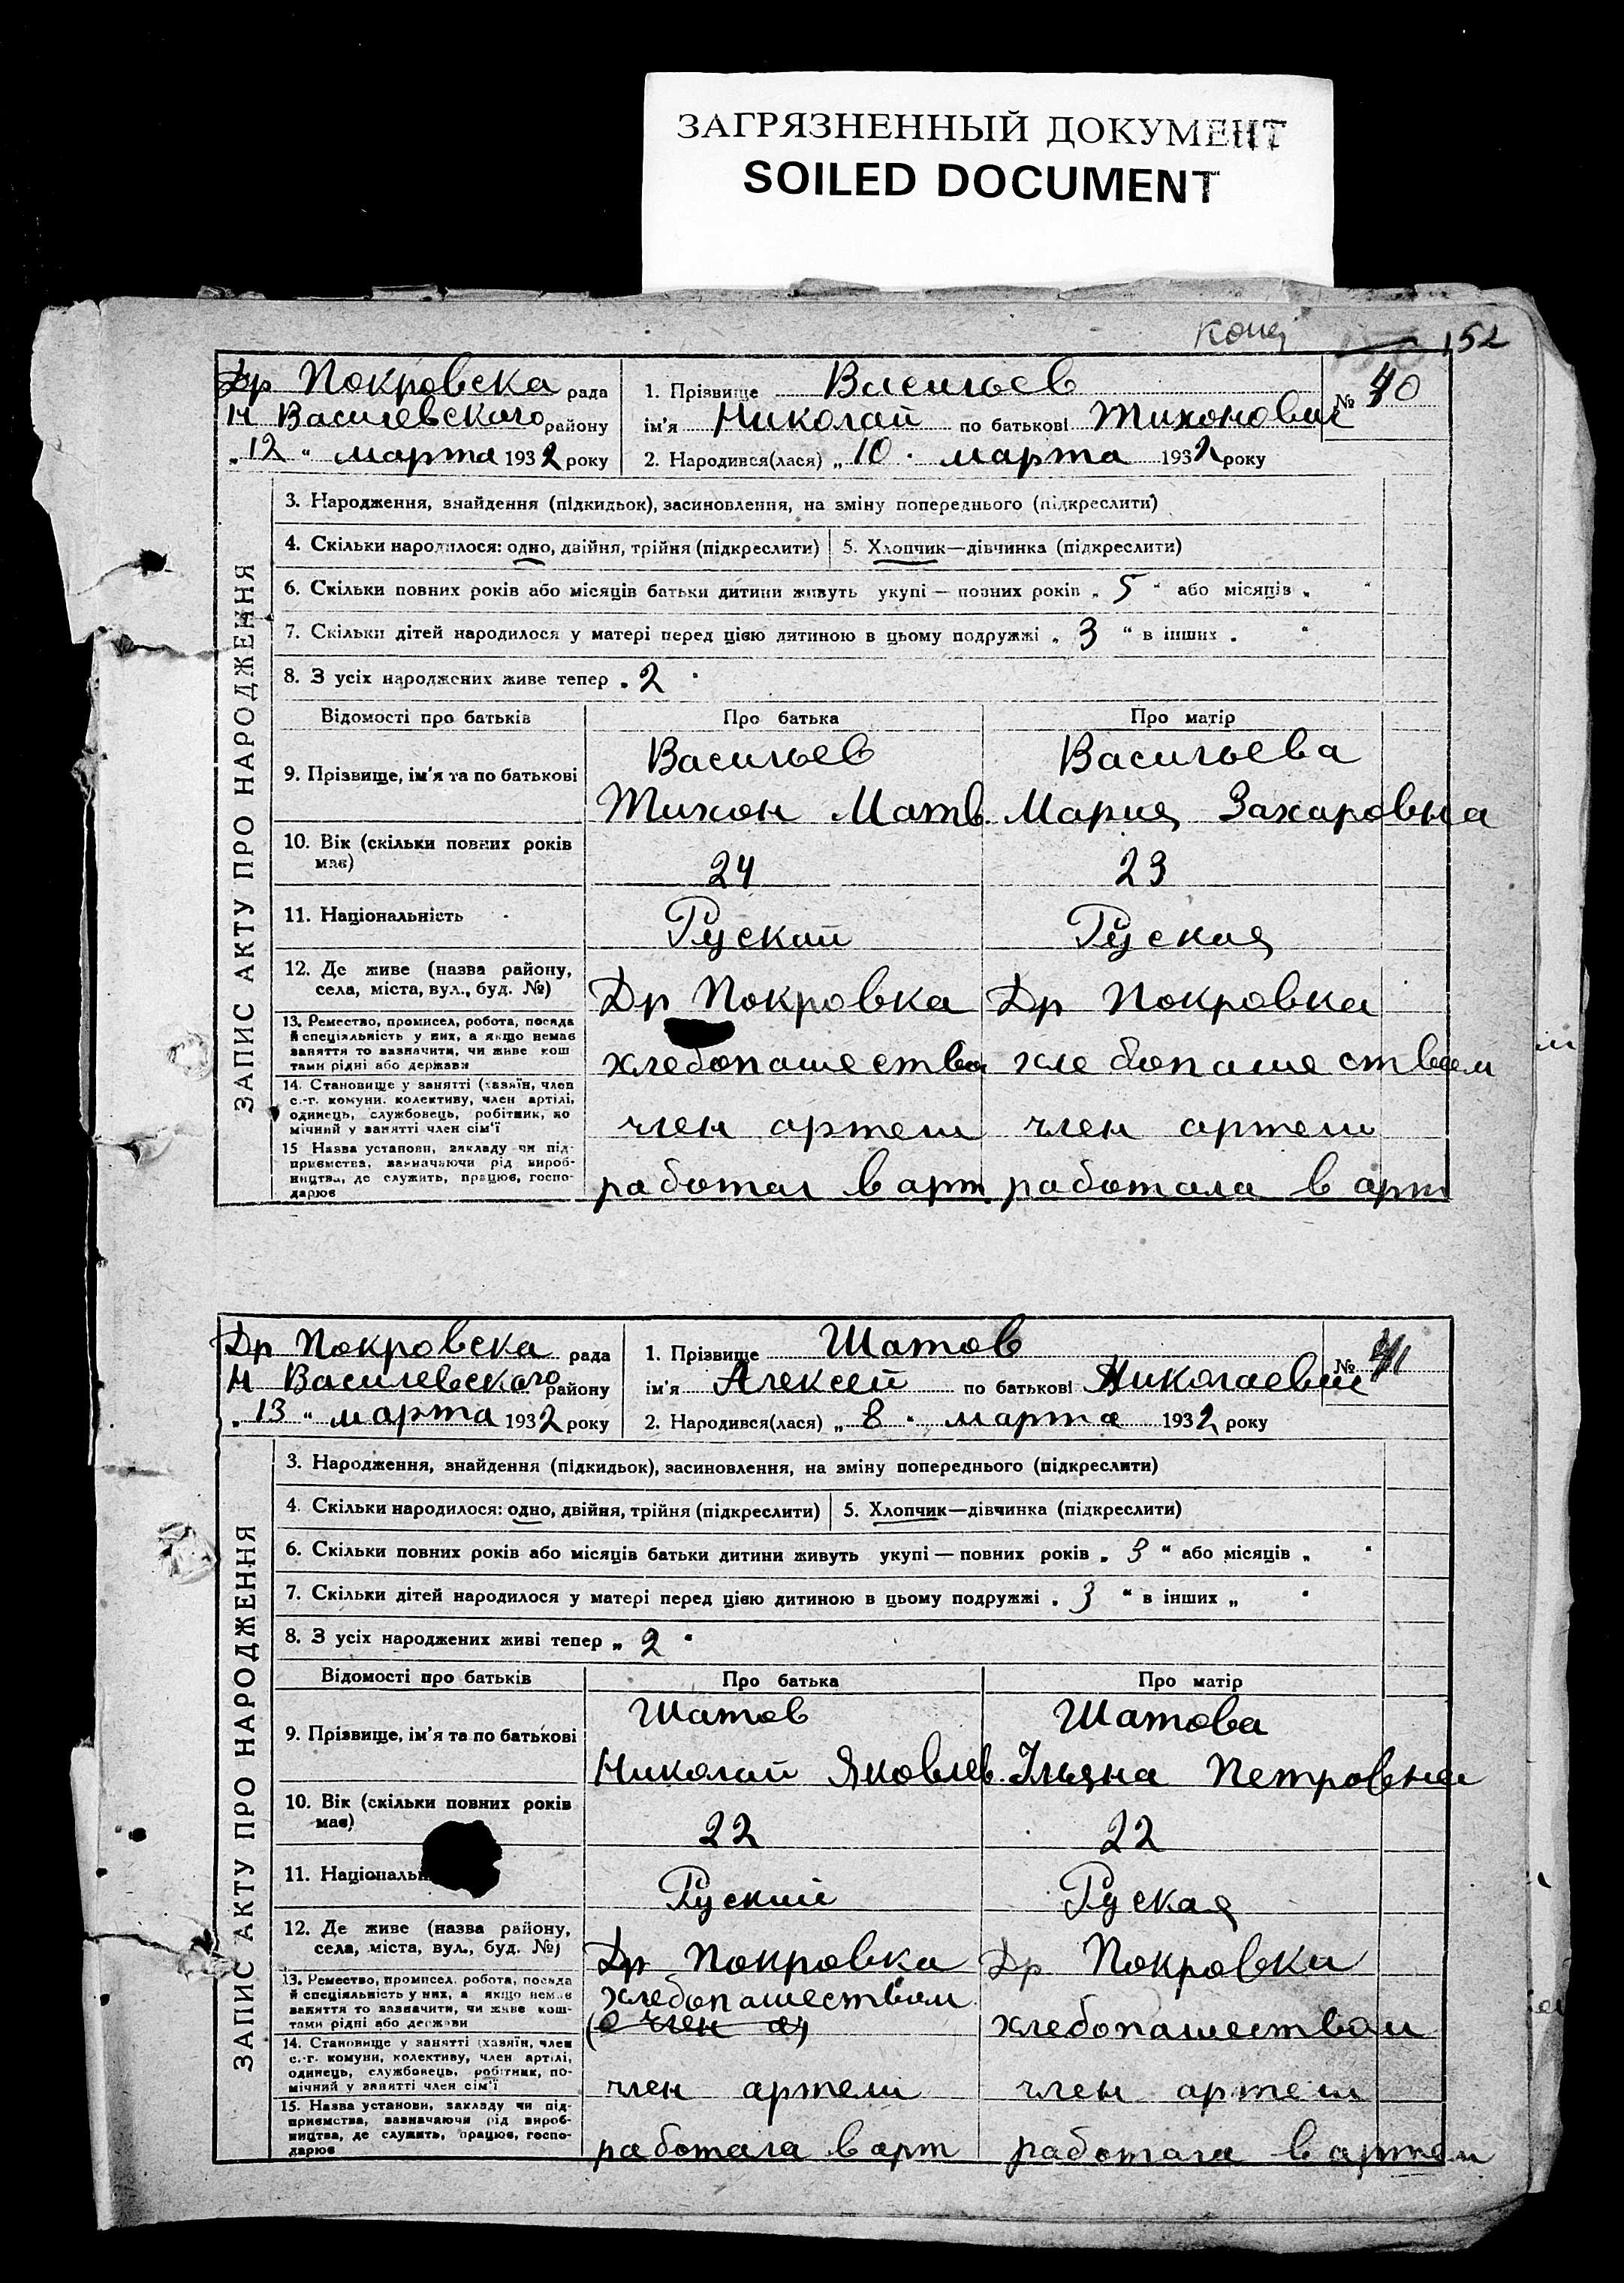 ЗАГРЯЗНЕННЫЙ ДОКУМЕНТ
SOILED DOCUMENT
152
Др Покровска рада
Н Василевского району
„ 12 “ марта 1932 року
1. Прізвище Васильев
ім'я Николай по батькові Тихонович
№ 40
2. Народився(лася) „ 10 “ марта 1932 року
ЗАПИС АКТУ ПРО НАРОДЖЕННЯ
3. Народження, знайдення (підкидьок), засиновлення, на зміну попереднього (підкреслити)
4. Скільки народилося: одно, двійня, трійня (підкреслити) 5. Хлопчик—дівчинка (підкреслити)
6. Скільки повних років або місяців батьки дитини живуть укупі — повних років „ 5 “ або місяців „ “
7. Скільки дітей народилося у матері перед цією дитиною в цьому подружжі „ 3 “ в інших „ “
8. З усіх народжених живе тепер „ 2 “
Відомості про батьків Про батька Про матір
9. Прізвище, ім'я та по батькові
Васильев Васильева
Тихон Матв. Мария Захаровна
10. Вік (скільки повних років має)
24 23
11. Національність
Руский Руская
12. Де живе (назва району,
села, міста, вул., буд. №)
Др Покровка Др Покровка
13. Ремество, промисел, робота, посада
й спеціяльність у них, а якщо немає
заняття то зазначити, чи живе кош
тами рідні або держави
хлебопашества хлебопашествоем
14. Становище у занятті (хазяїн, член
с.-г. комуни, колективу, член артілі,
одинець, службовець, робітник, по
мічний у занятті член сім'ї
член артели член артели
15 Назва установи, закладу чи під-
приємства, зазначаючи рід вироб-
ництва, де служить, працює, госпо-
дарює
работал в арт. работала в арт
Др Покровска рада
Н Василевского району
„ 13 “ марта 1932 року
1. Прізвище Шатов
ім'я Алексей по батькові Николаевич
№ 41
2. Народився(лася) „ 8 “ марта 1932 року
ЗАПИС АКТУ ПРО НАРОДЖЕННЯ
3. Народження, знайдення (підкидьок), засиновлення, на зміну попереднього (підкреслити)
4. Скільки народилося: одно, двійня, трійня (підкреслити) 5. Хлопчик—дівчинка (підкреслити)
6. Скільки повних років або місяців батьки дитини живуть укупі — повних років „ 3 “ або місяців „ “
7. Скільки дітей народилося у матері перед цією дитиною в цьому подружжі „ 3 “ в інших „ “
8. З усіх народжених живі тепер „ 2 “
Відомості про батьків Про батька Про матір
9. Прізвище, ім'я та по батькові
Шатов Шатова
Николай Яковлев. Ульяна Петровна
10. Вік (скільки повних років
має)
22 22
11. Національн
Руский Руская
12. Де живе (назва району,
села, міста, вул., буд. №)
Др Покровка Др Покровка
13. Ремество, промисел, робота, посада
й спеціяльність у них, а якщо немає
заняття то зазначити, чи живе кош-
тами рідні або держави
хлебопашеством
хлебопашеством
14. Становище у занятті (хазяїн, член
с.-г. комуни, колективу, член артілі,
одинець, службовець, робітник, по-
мічний у занятті член сім'ї
член артели член артели
15. Назва установи, закладу чи під-
приємства, зазначаючи рід вироб-
ництва, де служить, працює, госпо-
дарює
работала в арт работала в артели